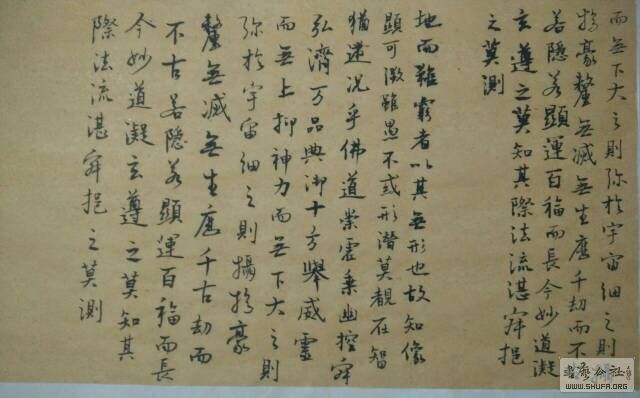 而無下大之則弥於宇宙細之則
攝於豪釐無滅無生歷千劫而不
若隱若顯運百福而長今妙道凝
玄遵之莫知其際法流湛寂挹
之莫測
地而難窮者以其無形也故知像
顯可徵雖愚不惑形潛莫覩在智
猶迷况乎佛道崇虛乗幽控寂
弘濟万品典御十方舉威靈
而無上抑神力而無下大之則
弥於宇宙細之則攝於豪
釐無滅無生歷千古劫而
不古若隱若顯運百福而長
今妙道凝玄遵之莫知其
際法流湛寂挹之莫測
WWW.SHUFA.ORG